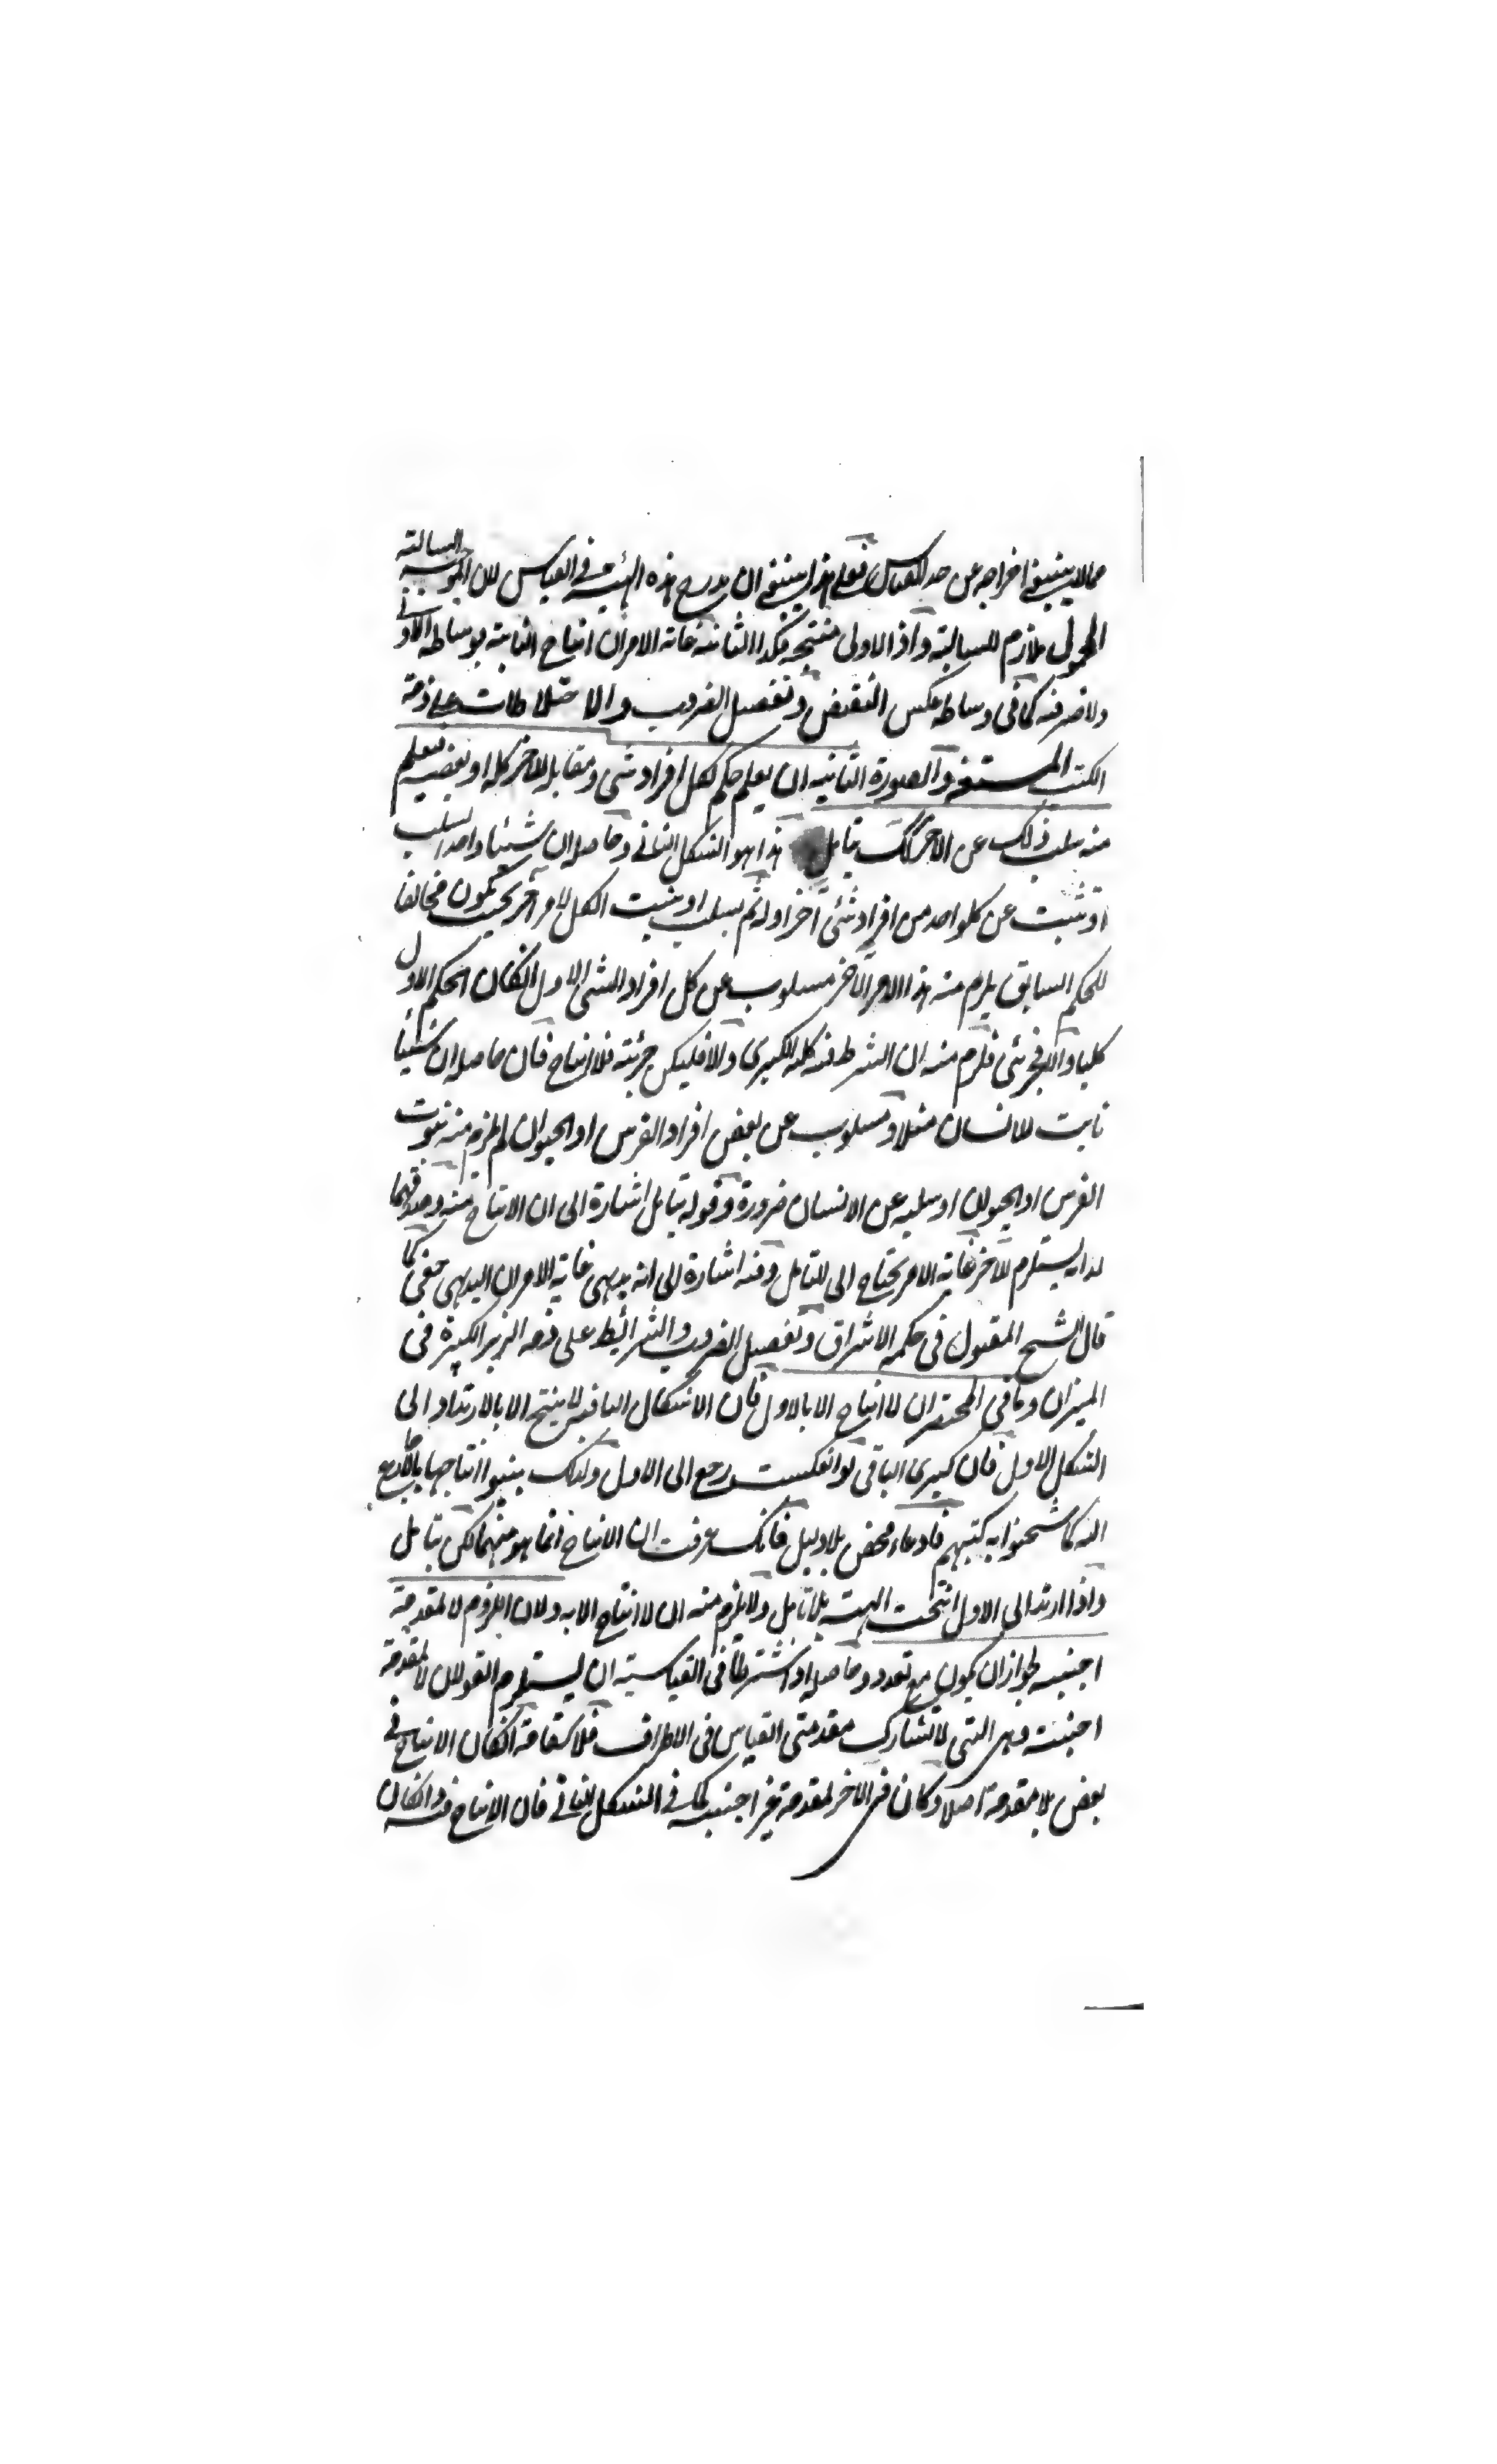 مما لا ينبغي اخراجه عن حد القياس فعلى هذا ينبغي ان يدرج هذه الهيئة في القياس لان الموجبة السالبة
المحمول ملازم للسالبة واذ الاولى منتجة فكذا الثانية غاية الامر ان انتاج الثانية بوساطة الاولى
ولا ضر فيه كما في وساطة عكس النقيض وتفصيل الضروب والاختلاطات على ذمة
الكتب المستفة والصورة الثانية ان يعلم حكم لكل افراد شئ ومقابله للاخر كله او بعضه فيعلم
منه سلب ذلك عن الاخر كك بتامل هذا هو الشكل الثاني وحاصله ان شيئا واحدا يسلب
او تثبت عن كل واحد من افراد شئ آخر اوله ثم يسلب او يثبت الكل لامر آخر بحيث يكون مخالفا
للحكم السابق يلزم منه هذا الامر الآخر مسلوب عن كل افراد الشئ الاول انكان الحكم الاول
كليا والا فجزئى فلزم منه ان الشرط فيه كلية الكبرى والا فليكن جزئية فلا انتاج فان حاصله ان شيئا
ثابت للانسان مثلا ومسلوب عن بعض افراد الفرس او الحيوان لم يلزم منه ثبوت
الفرس او الحيوان او سلبه عن الانسان ضرورة وقوله بتامل اشارة الى ان الانتاج منه وصدقهما
لذاته يستلزم للاخر غاية الامر يحتاج الى التامل وفيه اشارة الى انه بديهى غاية الامر ان البديهى خفى كما
قال الشيخ المقتول فى حكمة الاشراق وتفصيل الضروب والشرائط على ذمة الزبر الكبيرة فى
الميزان وما فى المختصر ان لا انتاج الا بالاول فان الاشكال الباقية لا ينتج الا بالارتداد الى
الشكل الاول فان كبرى الباقى لو انعكست رجع الى الاول ولذلك بينوا انتاجها بالارجاع
اليه كما شحنوا به كتبهم فادعاء محض بلا دليل فانك عرفت ان الانتاج انما هو منهما لكن بتامل
واذا ارتد الى الاول انتجت البتة بلا تامل ولا يلزم منه ان لا انتاج الا به ولان اللزوم لا لمقدمة
اجنبية لجواز ان يكون مع تعدد وحاصله اذ اشترطنا فى القياسية ان يستلزم القولان لا لمقدمة
اجنبية وهى التى لا تشارك مقدمتى القياس فى الاطراف فلا شقاقة انكان الانتاج فى
بعض بلا مقدمة اصلا وكان فى الاخر لمقدمة غير اجنبية كما فى الشكل الثانى فان الانتاج فيه وانكان